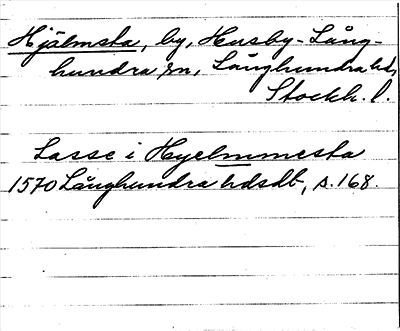 Hjälmsta, by, Husby-Lång-
hundra sn, Långhundra hd,
Stockh. l.
Lasse i Hyelmmesta
1570 Långhundra hdsdb, s. 168.